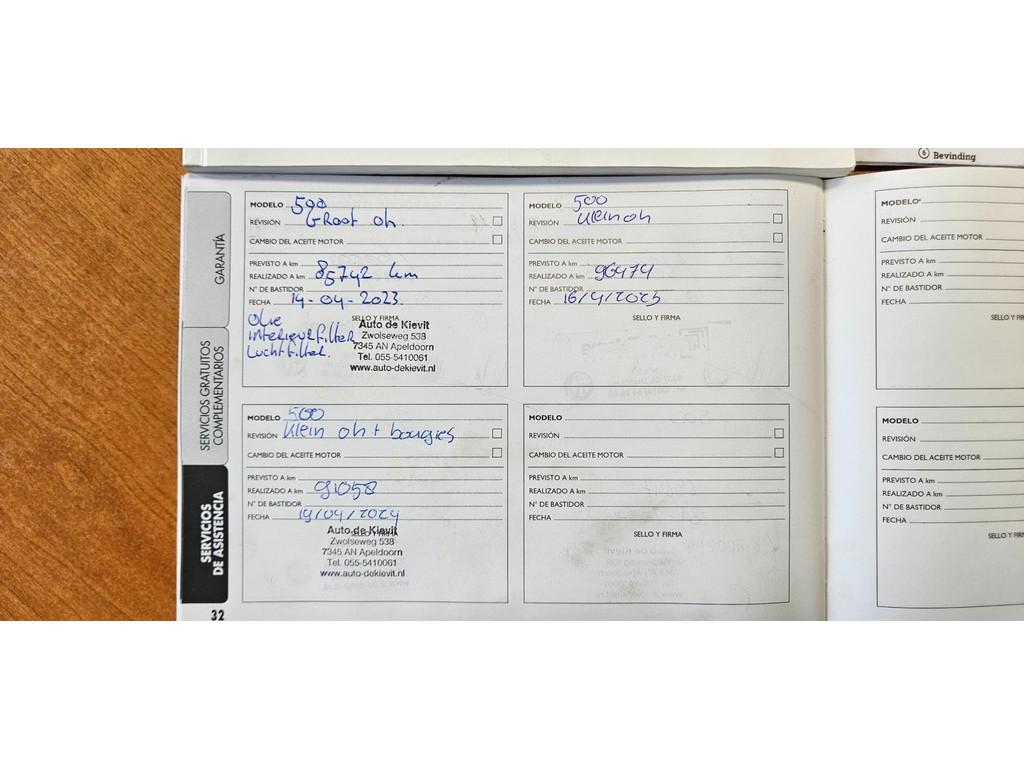 6 Bevinding
GARANTÍA
SERVICIOS GRATUITOS
COMPLEMENTARIOS
SERVICIOS
DE ASISTENCIA
32
MODELO 500
REVISIÓN Groot oh.
CAMBIO DEL ACEITE MOTOR
PREVISTO A km
REALIZADO A km 85742 km
N° DE BASTIDOR
FECHA 14-04-2023.
SELLO Y FIRMA
Olie
interieurfilter
Luchtfilter.
Auto de Kievit
Zwolseweg 538
7345 AN Apeldoorn
Tel. 055-5410061
www.auto-dekievit.nl
MODELO 500
REVISIÓN Klein oh
CAMBIO DEL ACEITE MOTOR
PREVISTO A km
REALIZADO A km 96474
N° DE BASTIDOR
FECHA 16/4/2025
SELLO Y FIRMA
MODELO 500
REVISIÓN Klein oh + bougies
CAMBIO DEL ACEITE MOTOR
PREVISTO A km
REALIZADO A km 91058
N° DE BASTIDOR
FECHA 19/04/2024
SELLO Y FIRMA
Auto de Kievit
Zwolseweg 538
7345 AN Apeldoorn
Tel. 055-5410061
www.auto-dekievit.nl
MODELO
REVISIÓN
CAMBIO DEL ACEITE MOTOR
PREVISTO A km
REALIZADO A km
N° DE BASTIDOR
FECHA
SELLO Y FIRMA
MODELO
REVISIÓN
CAMBIO DEL ACEITE MOTOR
PREVISTO A km
REALIZADO A km
N° DE BASTIDOR
FECHA
SELLO Y
MODELO
REVISIÓN
CAMBIO DEL ACEITE MOTOR
PREVISTO A km
REALIZADO A km
N° DE BASTIDOR
FECHA
SELLO Y